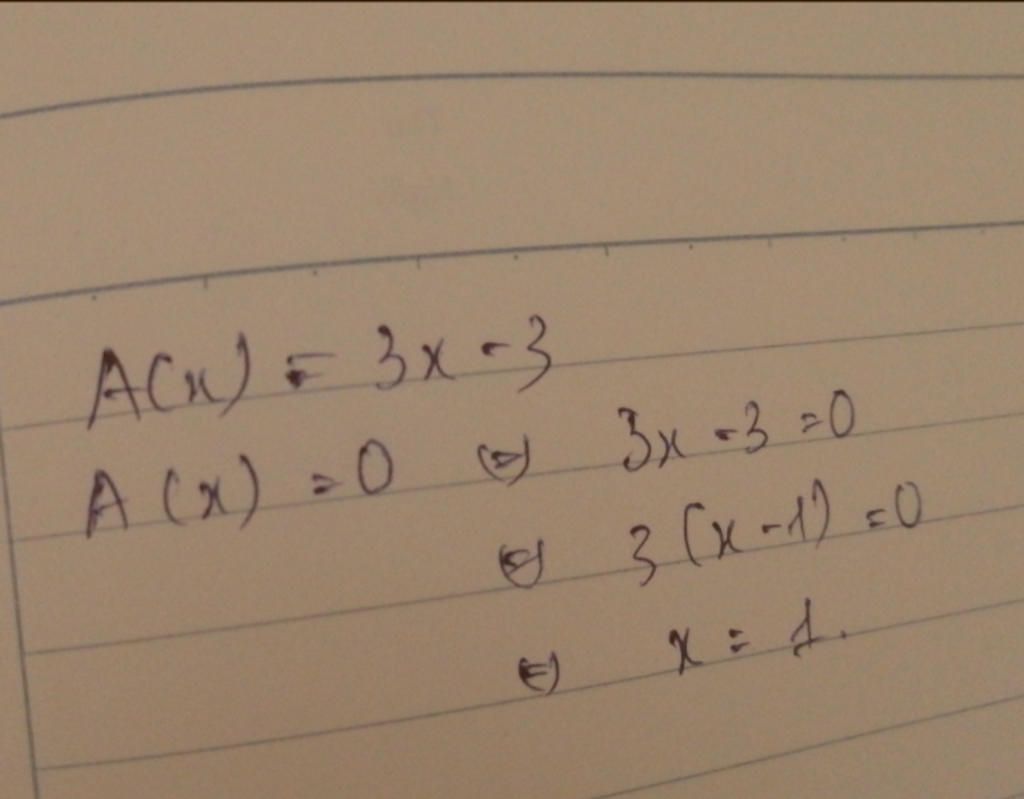 A(x) = 3x - 3
A(x) = 0 ⇔ 3x - 3 = 0
⇔ 3(x - 1) = 0
⇔ x = 1.